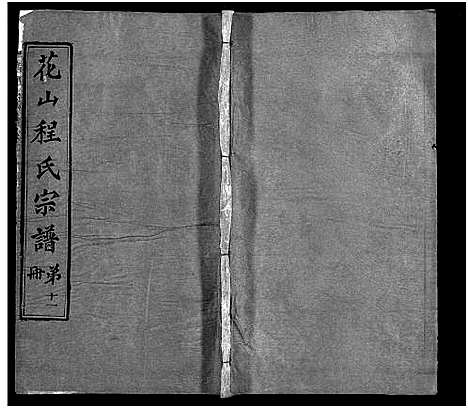 花山程氏宗譜
第十一冊